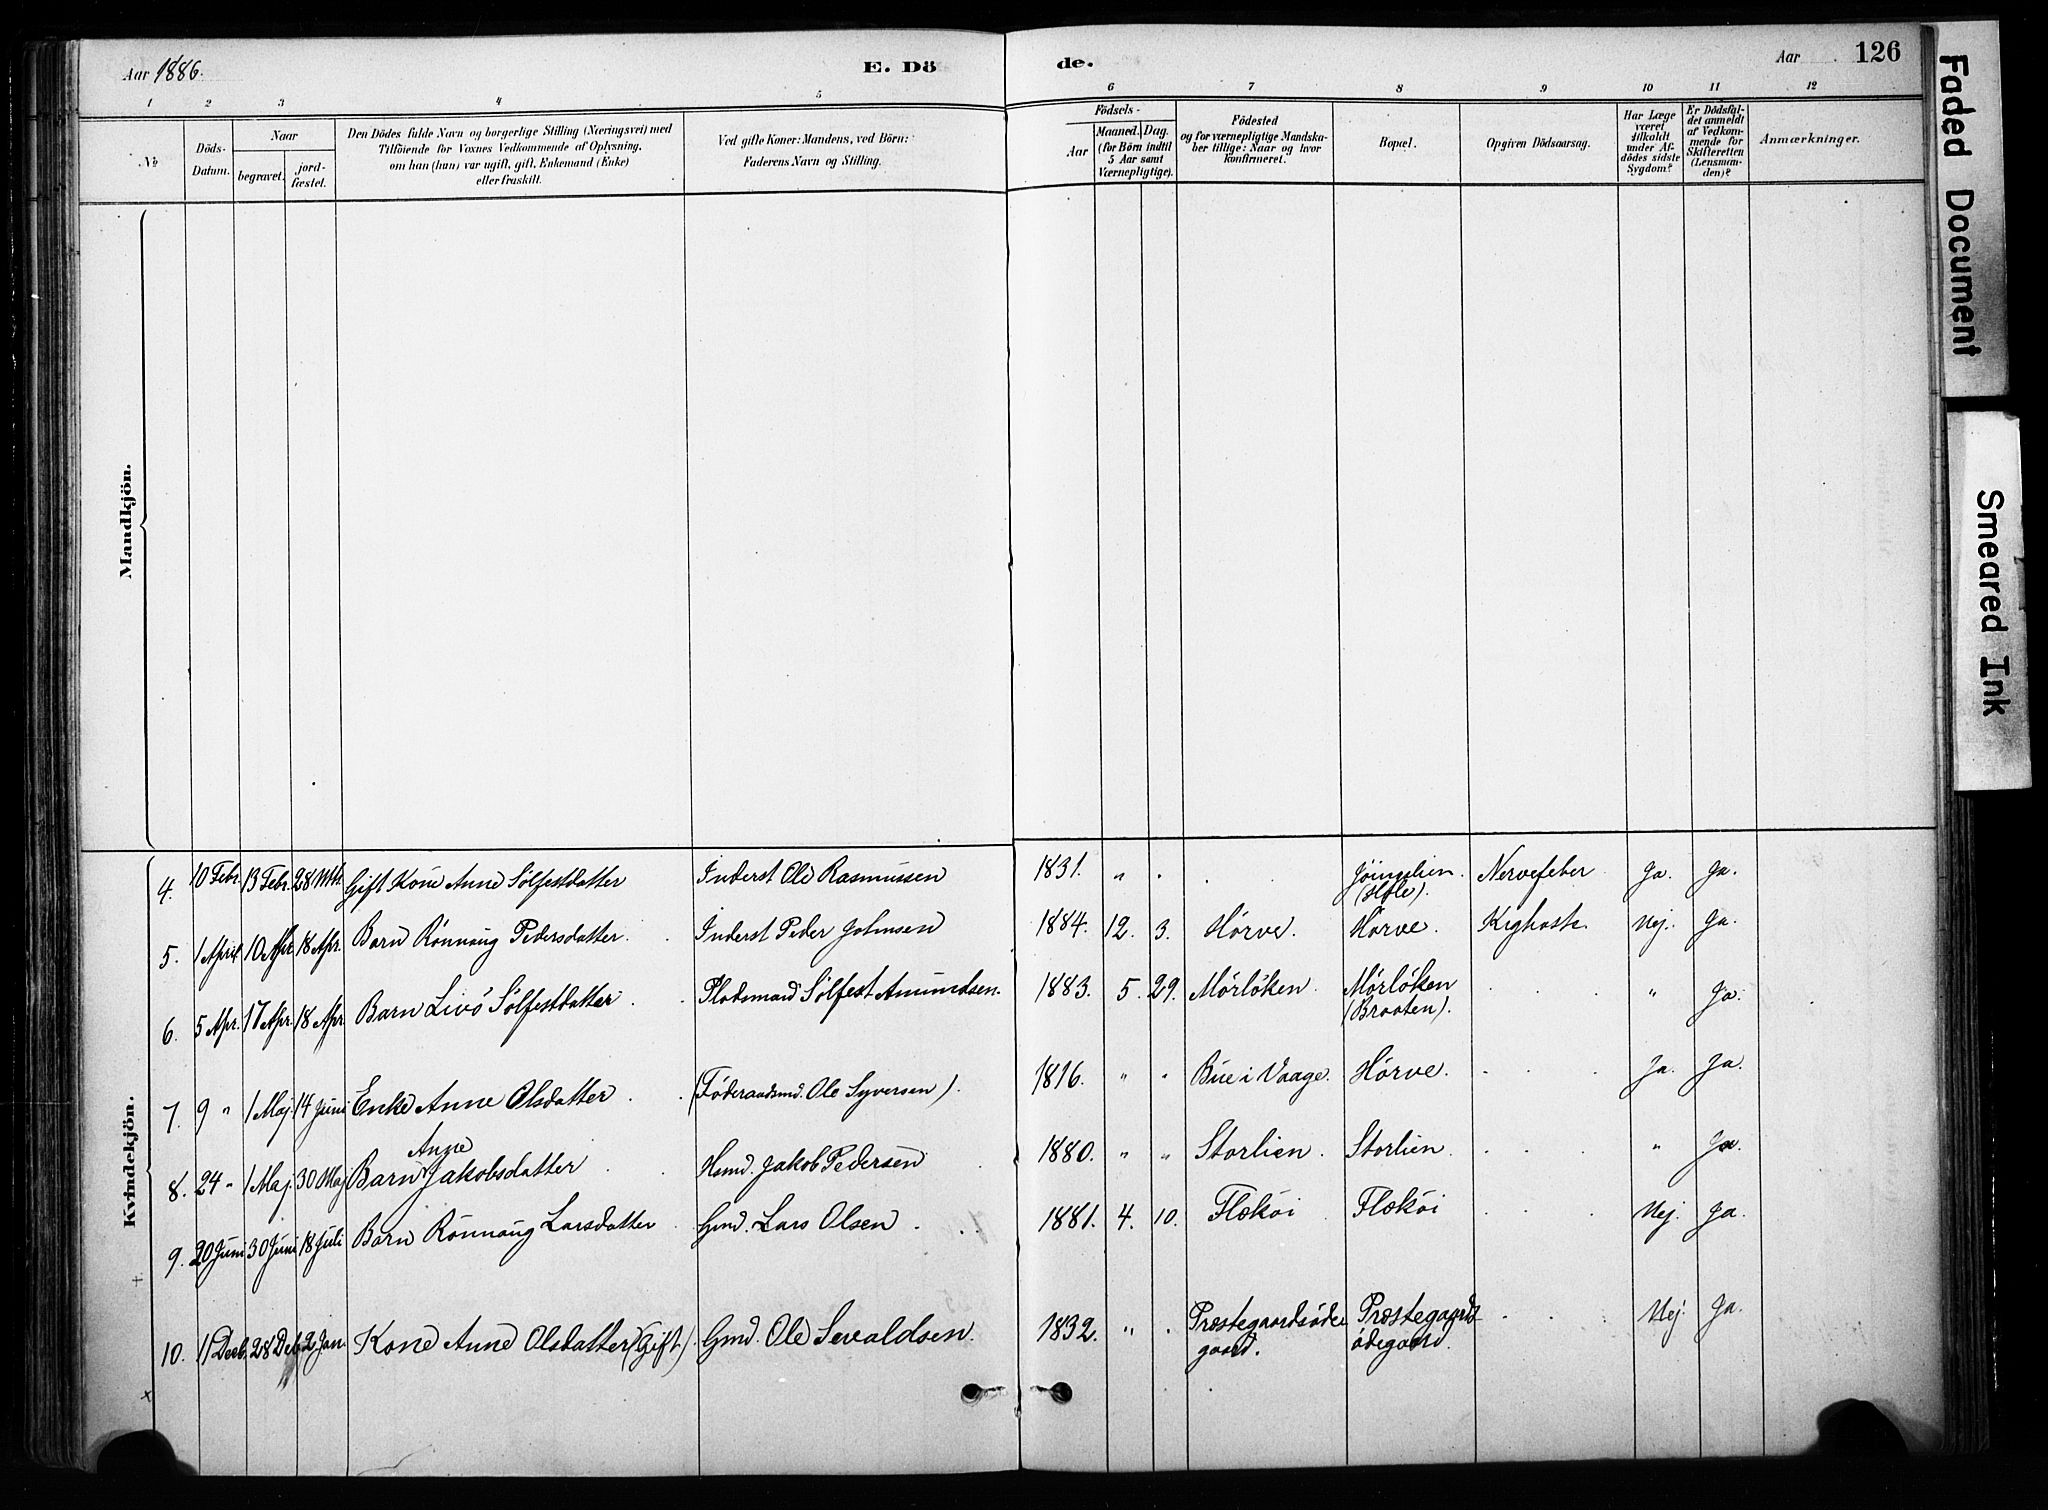 Aar 1886.
E. Dö
de.
Aar
126
1 2 3 4 5 6 7 8 9 10 11 12
No
Döds-
Datum.
Naar
begravet.
jord-
fæstet.
Den Dödes fulde Navn og borgerlige Stilling (Næringsvei) med
Tilföiende for Voxnes Vedkommende af Oplysning,
om han (hun) var ugift, gift, Enkemand (Enke)
eller fraskilt.
Ved gifte Koner: Mandens, ved Börn:
Faderens Navn og Stilling.
Födsels-
Aar
Maaned. Dag.
(for Börn indtil
5 Aar samt
Værnepligtige).
Födested
og for værnepligtige Mandska-
ber tillige: Naar og hvor
konfirmeret.
Bopæl.
Opgiven Dödsaarsag.
Har Læge
været
tilkaldt
under Af-
dödes sidste
Sygdom?
Er Dödsfal-
det anmeldt
af Vedkom-
mende for
Skifteretten
(Lensman-
den)?
Anmærkninger.
Mandkjön.
Kvindekjön.
4. 10 Febr. 13 Febr. 28 Mts. Gift Kone Anne Sølfestdatter Inderst Ole Rasmussen 1831. " . . (Hole). Nervefeber Ja. Ja.
5. 1 April 10 Apr. 18 Apr. Barn Rønnaug Pedersdatter. Inderst Peder Johnsen 1884. 12. 3. Hørve. Hørve. Kighoste Nej. Ja.
6. 5 Apr. 17 Apr. 18 Apr. Barn Livø Sølfestdatter. Pladsmand Sølfest Amundsen. 1883. 5. 29. Mørløken. Mørløken (Braaten). " Ja.
7. 9 " 1 Maj. 14 Juni Enke Anne Olsdatter. (Føderaadsmd. Ole Syversen). 1816. " " Bue i Vaage. Hørve. Ja. Ja.
8. 24 " 1 Maj. 30 Maj Barn Anne Jakobsdatter Hsmd. Jakob Pedersen 1880. " " Storlien. Storlien. " Ja.
9. 20 Juni 30 Juni 18 Juli Barn Rønnaug Larsdatter Gmd. Lars Olsen. 1881. 4. 10. Flækøi Flækøi Nej. Ja.
10. 11 Decb. 28 Deb. 2 Jan. Kone Anne Olsdatter (Gift.) Gmd. Ole Sevaldsen. 1832. " . Præstegaardsøde gaard. Præstegaards ødegaard. Nej. Ja.
Faded Document
Smeared Ink